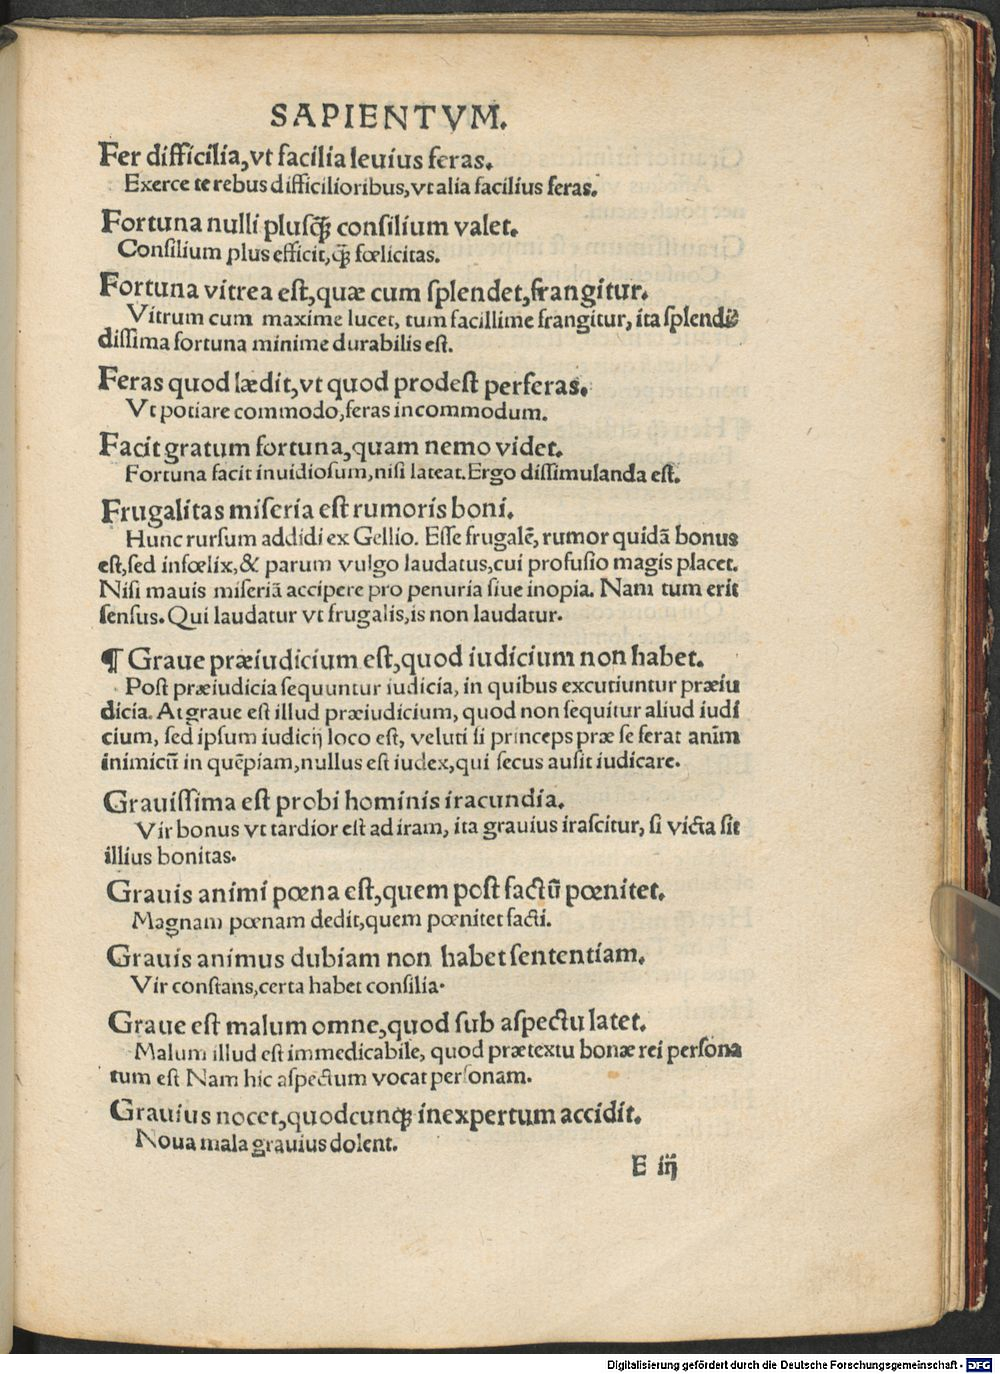 SAPIENTVM.
Fer difficilia,vt facilia leuius feras.
Exerce te rebus difficilioribus,vt alia facilius feras.
Fortuna nulli plusꝙ̃ consilium valet.
Consilium plus efficit,ꝙ̃ fœlicitas.
Fortuna vitrea est,quæ cum splendet,frangitur.
Vitrum cum maxime lucet, tum facillime frangitur, ita splendi
dissima fortuna minime durabilis est.
Feras quod lædit,vt quod prodest perferas.
Vt potiare commodo,feras incommodum.
Facit gratum fortuna,quam nemo videt.
Fortuna facit inuidiosum,nisi lateat.Ergo dissimulanda est.
Frugalitas miseria est rumoris boni.
Hunc rursum addidi ex Gellio. Esse frugalẽ, rumor quidã bonus
est,sed infœlix,& parum vulgo laudatus,cui profusio magis placet.
Nisi mauis miseriã accipere pro penuria siue inopia. Nam tum erit
sensus. Qui laudatur vt frugalis,is non laudatur.
¶ Graue præiudicium est,quod iudicium non habet.
Post præiudicia sequuntur iudicia, in quibus excutiuntur præiu
dicia. At graue est illud præiudicium, quod non sequitur aliud iudi
cium, sed ipsum iudicij loco est, veluti si princeps præ se ferat anim̃
inimicũ in quẽpiam,nullus est iudex,qui secus ausit iudicare.
Grauissima est probi hominis iracundia.
Vir bonus vt tardior est ad iram, ita grauius irascitur, si victa sit
illius bonitas.
Grauis animi pœna est,quem post factũ pœnitet.
Magnam pœnam dedit,quem pœnitet facti.
Grauis animus dubiam non habet sententiam.
Vir constans,certa habet consilia.
Graue est malum omne,quod sub aspectu latet.
Malum illud est immedicabile, quod prætextu bonæ rei persona
tum est Nam hic aspectum vocat personam.
Grauius nocet,quodcunqꝫ inexpertum accidit.
Noua mala grauius dolent.
E iij
Digitalisierung gefördert durch die Deutsche Forschungsgemeinschaft - DFG